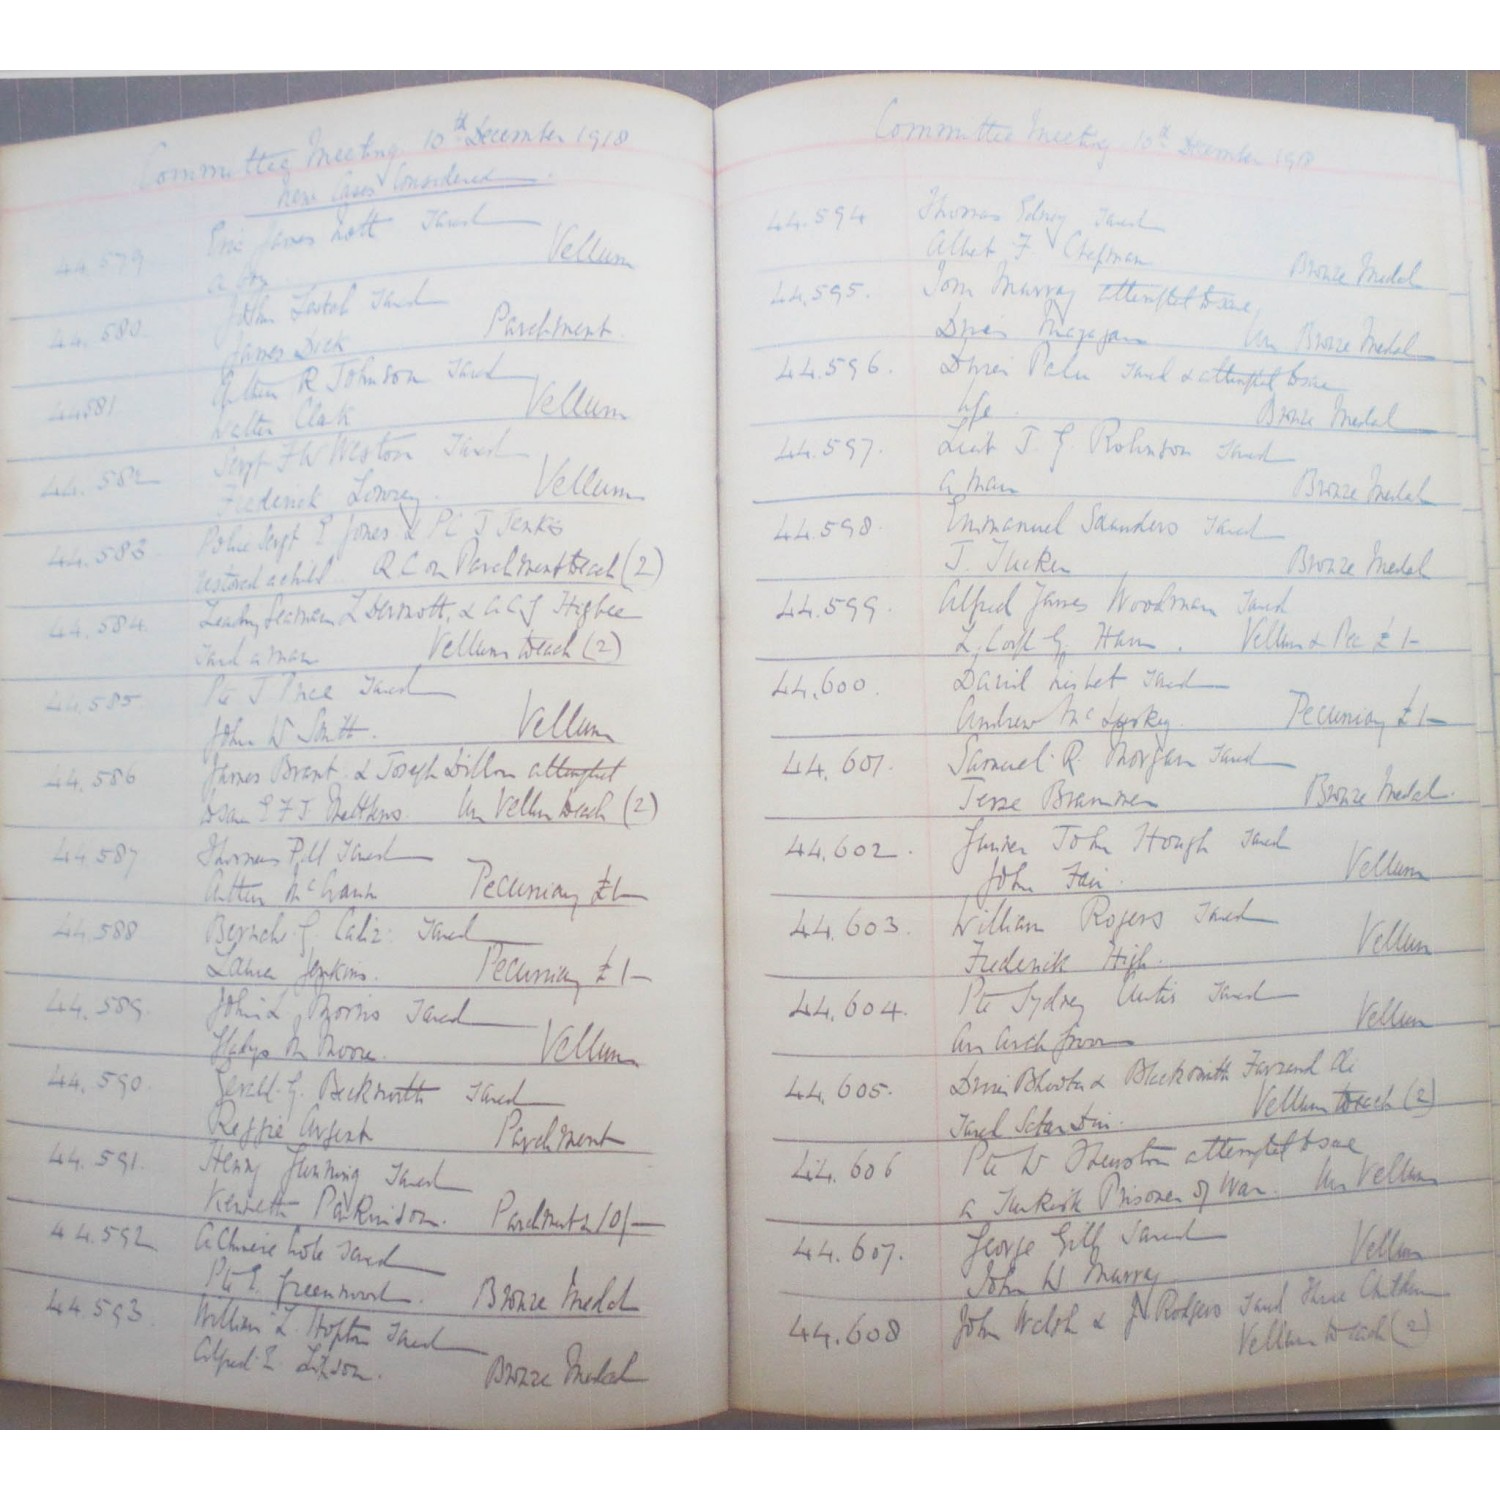 Committee Meeting 10th December 1918
New Cases Considered
44.579 Eric James Nott saved
a boy Vellum
44.580 John saved
James Dick Parchment
44.581 R Johnson saved
Walter Clark Vellum
44.582 Sergt F W Weston saved
Frederick Lowrey. Vellum
44.583 Police Sergt E Jones & P.C. J Jenkis
restored a child R C on Parchment to each (2)
44.584 Leading Seaman L Dermott, & A C J Higbee
saved a man Vellum to each (2)
44.585 Pte J Price saved
John W Smith. Vellum
44.586 James Brant & Joseph Dillon attempted
to save E F J Matthews. Un Vellum to each (2)
44.587 Thomas Pill saved
Arthur McGrann Pecuniary £1-
44.588 G saved
Jenkins. Pecuniary £1-
44.589. John L Borris saved
Gladys M Moore. Vellum
44.590. Gerald G. Beckworth saved
Reggie Argent Parchment
44.591. Henry Gunning saved
Kenneth Parkinson. Parchment & 10/-
44.592 Cole saved
Pte E. Greenwood. Bronze Medal
44.593. William L. Hopton saved
Alfred E. Bronze Medal
Committee Meeting 10th December 1918
44.594 Thomas Edney saved
Albert F Chapman Bronze Medal
44.595. Tom Murray attempted to save
Driver Un Bronze Medal
44.596. Driver saved & attempted to save
life. Bronze Medal
44.597. Lieut J. G. Robinson saved
a man Bronze Medal
44.598. Emmanuel Saunders saved
J. Tucker Bronze Medal
44.599. Alfred James Woodman saved
L. Corpl G. Ham. Vellum & Pec £1-
44.600. David Nisbet saved
Andrew McLuskey. Pecuniary £1-
44.601. Samuel R. Morgan saved
Jesse Brammer Bronze Medal.
44.602. Gunner John Hough saved
John Fair. Vellum
44.603. William Rogers saved
Frederick High. Vellum
44.604. Pte Sydney Curtis saved
Vellum
44.605. Driver & Blacksmith Farzand Ali
saved Vellum to each (2)
44.606 Pte W attempted to save
a Turkish Prisoner of War. Un Vellum
44.607. George Gill saved
John W Murray Vellum
44.608 John Welsh & J. Rodgers saved three children
Vellum to each (2)